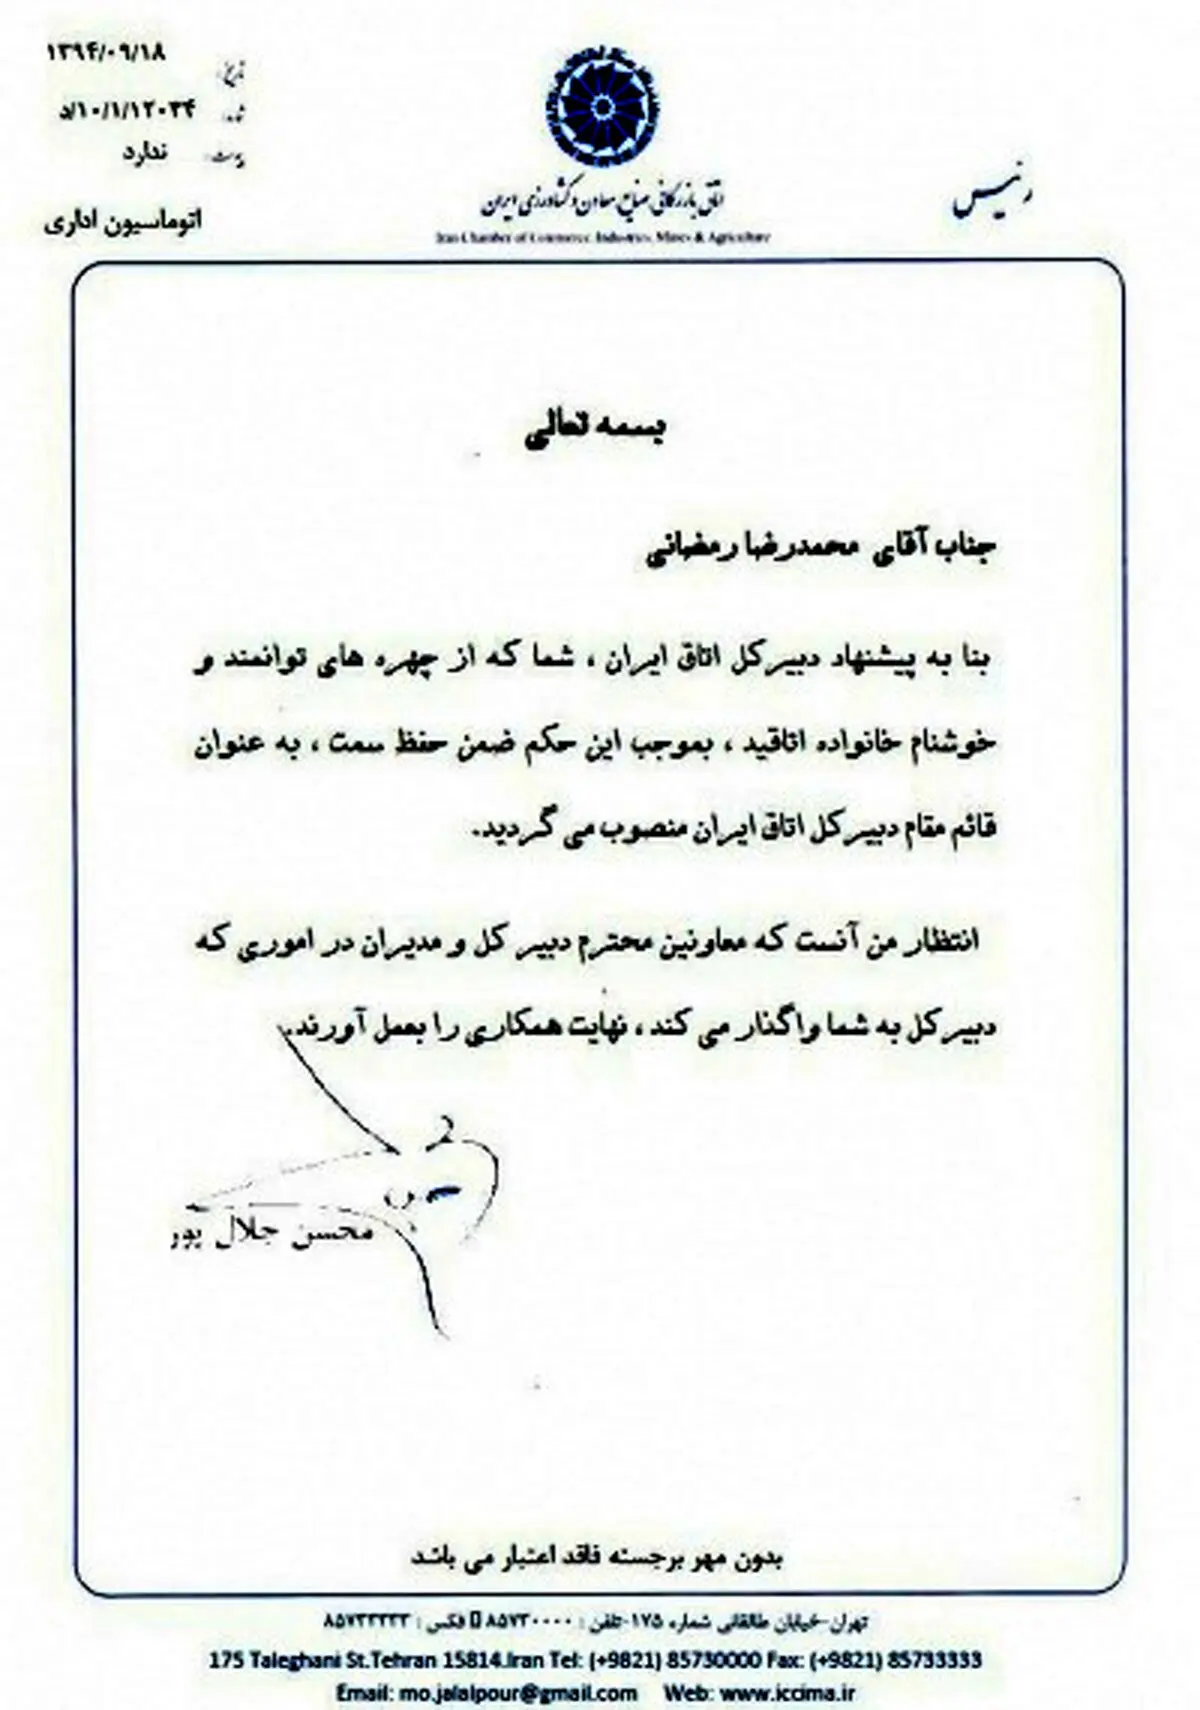 ۱۳۹۴/۰۹/۱۸
تاریخ:
د/۱۰/۱/۱۲۰۳۴
شماره:
ندارد
پیوست:
اتوماسیون اداری
اتاق بازرگانی، صنایع، معادن و کشاورزی ایران
Iran Chamber of Commerce, Industries, Mines & Agriculture
رئیس
بسمه تعالی
جناب آقای محمدرضا رمضانی
بنا به پیشنهاد دبیرکل اتاق ایران ، شما که از چهره های توانمند و
خوشنام خانواده اتاقید ، بموجب این حکم ضمن حفظ سمت ، به عنوان
قائم مقام دبیرکل اتاق ایران منصوب می گردید.
انتظار من آنست که معاونین محترم دبیر کل و مدیران در اموری که
دبیرکل به شما واگذار می کند ، نهایت همکاری را بعمل آورند.
محسن جلال پور
بدون مهر برجسته فاقد اعتبار می باشد
تهران-خیابان طالقانی شماره ۱۷۵-تلفن : ۸۵۷۳۰۰۰۰ فکس : ۸۵۷۳۳۳۳۳
175 Taleghani St.Tehran 15814.Iran Tel: (+9821) 85730000 Fax: (+9821) 85733333
Email: mo.jalalpour@gmail.com Web: www.iccima.ir